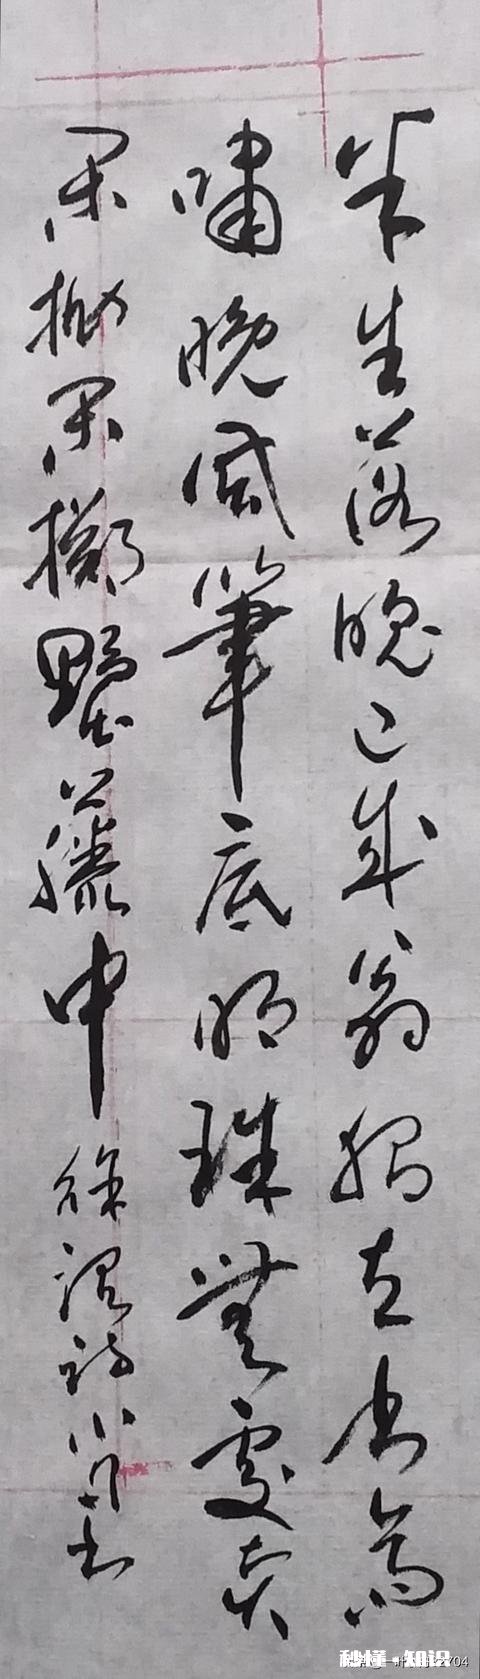 半生落魄已成翁独立书斋
嘯晚风筆底明珠無處卖
闲抛闲擲野藤中 徐渭诗 书
秒懂·知识